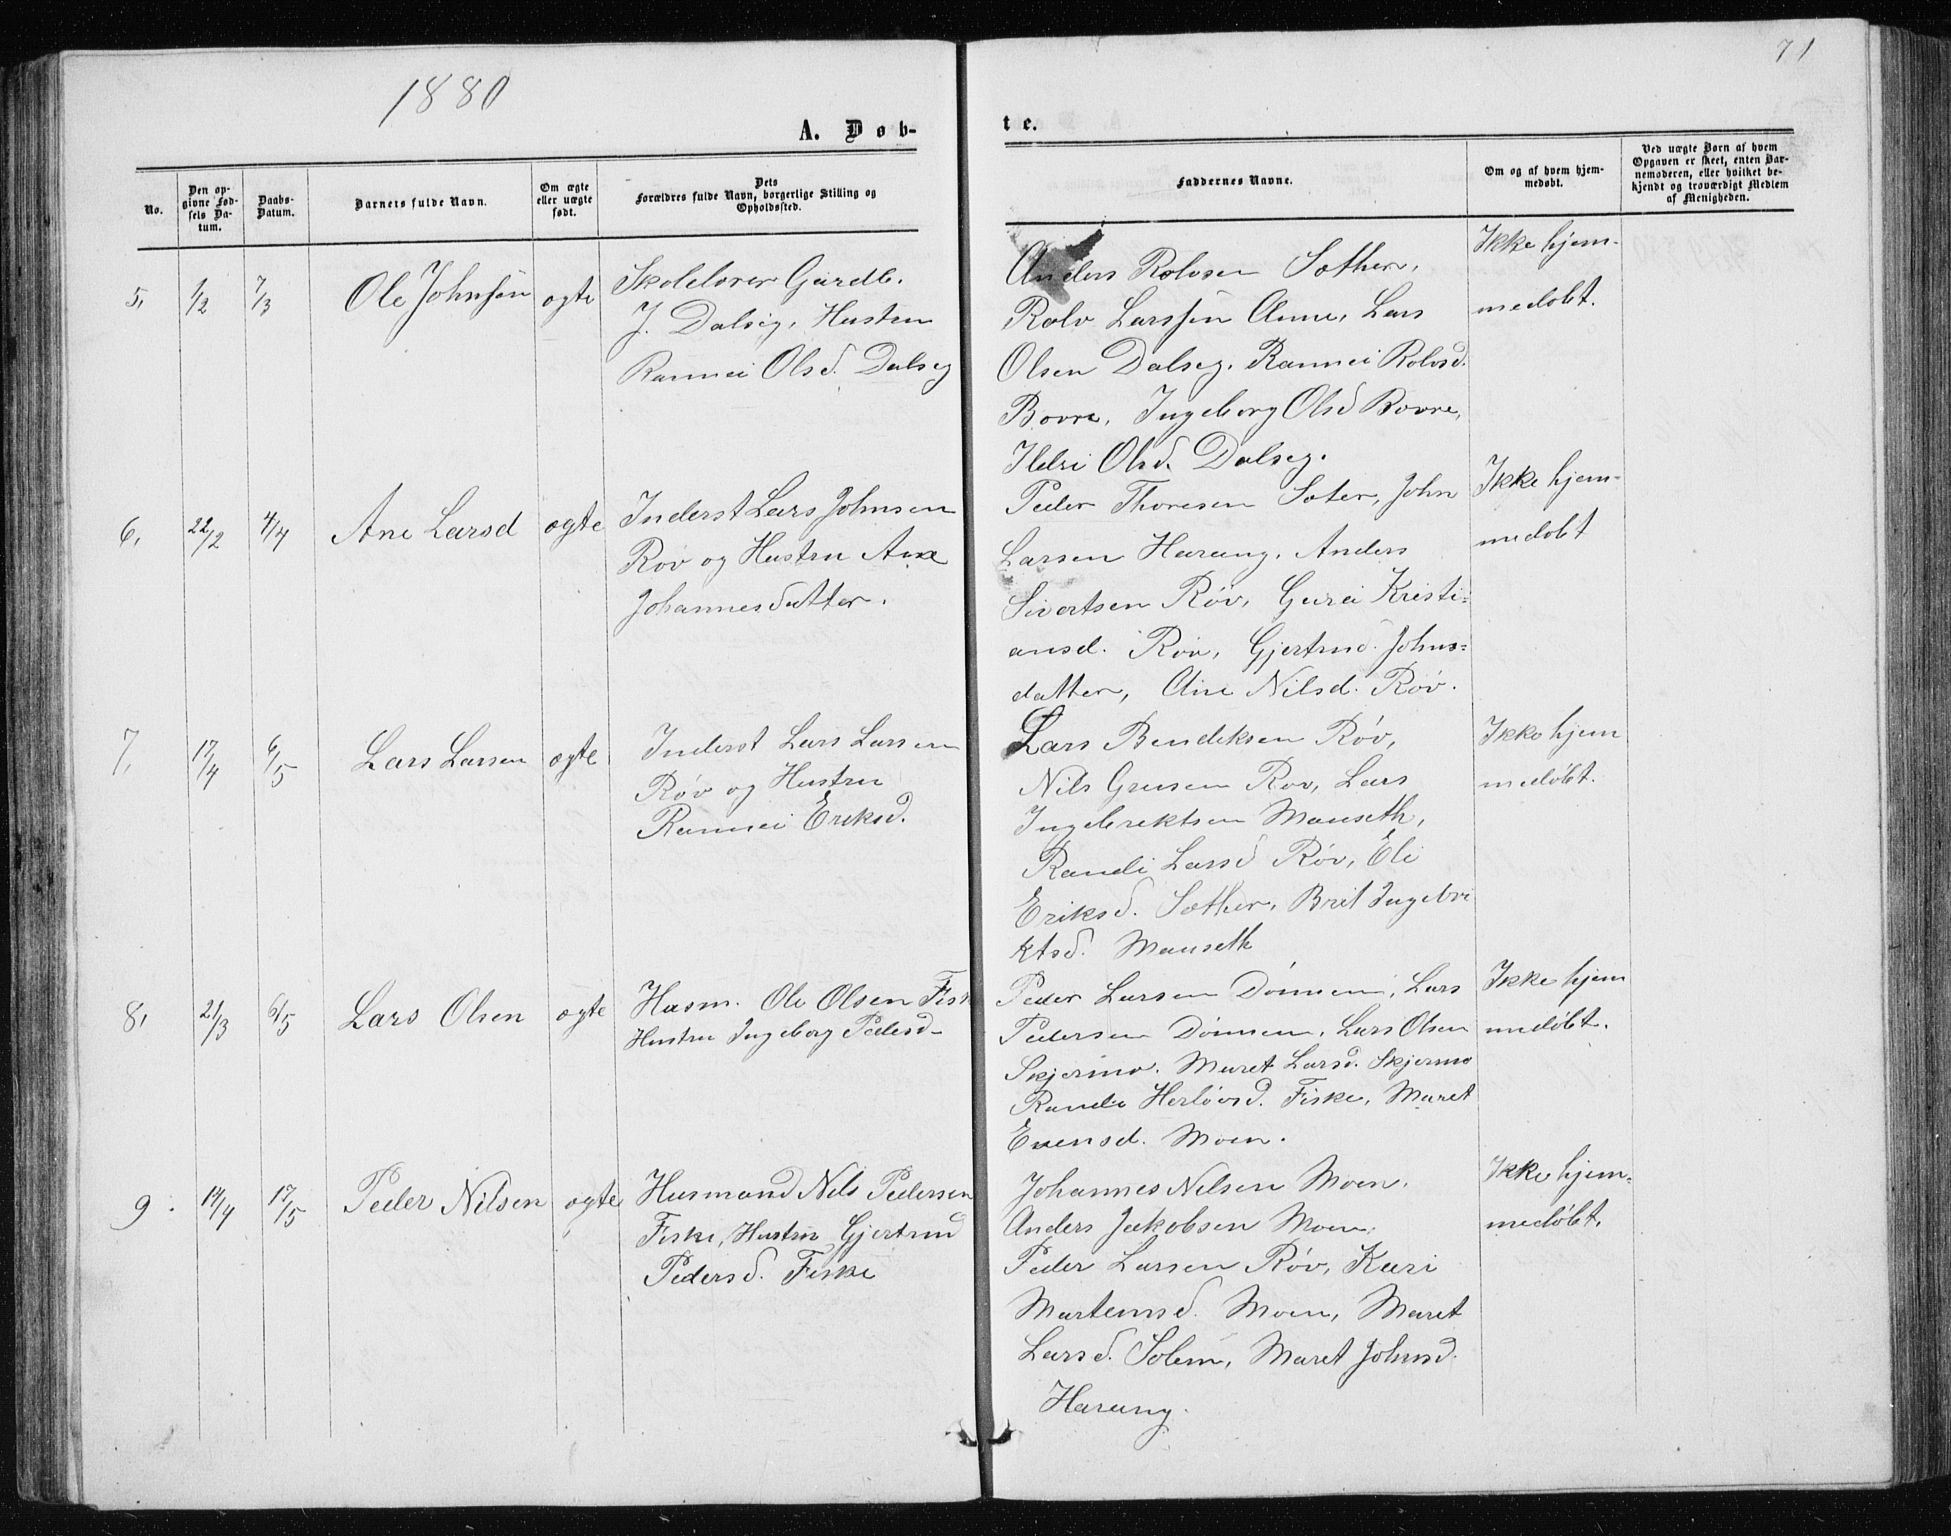 1880
71
A. Døb-
te.
No.
Den op-
givne Fød-
sels Da-
tum.
Daabs-
Datum.
Barnets fulde Navn.
Om ægte
eller uægte
født.
Dets
Forældres fulde Navn, borgerlige Stilling og
Opholdssted.
Faddernes Navne.
Om og af hvem hjem-
medøbt.
Ved uægte Børn af hvem
Opgaven er skeet, enten Bar-
nemoderen, eller hvilket be-
kjendt og troværdigt Medlem
af Menigheden.
5, 1/2 7/3 Ole Johnsen ægte
Skolelærer Gaardb.
J. Dalseg, Hustru
Rannei Olsd. Dalseg
Anders Rolvsen Sæther,
Rolv Larssen Aune, Lars
Olsen Dalseg, Rannei Rolvsd.
Bovre, Ingeborg Olsd Bovre,
Olsd. Dalseg.
Ikke hjem-
medøbt.
6, 22/2 4/4 Ane Larsd ægte
Inderst Lars Johnsen
Røv og Hustru Ane
Johannesdatter.
Peder Thoresen Sæter, John
Larsen Harang, Anders
Sivertsen Røv, Gurei Kristi=
ansd. Røv, Gjertrud Johns=
datter, Ane Nilsd. Røv.
Ikke hjem-
medøbt
7, 17/4 6/5 Lars Larsen ægte
Inderst Lars Larsen
Røv og Hustru
Rannei Eriksd.
Lars Bendiksen Røv,
Nils Røv, Lars
Ingebrektsen Mauseth,
Randi Larsd Røv, Eli
Eriksd. Sæther, Brit Ingebri
ktsd. Mauseth
Ikke hjem
medøbt.
8, 21/3 6/5 Lars Olsen ægte
Husm. Ole Olsen Fisk
Hustru Ingeborg Pedersd-
Peder Larsen Dønnem, Lars
Pedersen Dønnem, Lars Olsen
Skjermo. Maret Larsd. Skjermo
Randi Herløvsd. Fiske, Maret
Evensd. Moen.
Ikke hjem
medøbt.
9. 14/4 17/5 Peder Nilsen ægte
Husmand Nils Pedersen
Fiske, Hustru Gjertrud
Pedersd. Fiske
Johannes Nilsen Moen,
Anders Jakobsen Moen,
Peder Larsen Røv, Kari
Martensd. Moen, Maret
Larsd. Solem, Maret Johnsd.
Harang.
Ikke hjem-
medøbt.